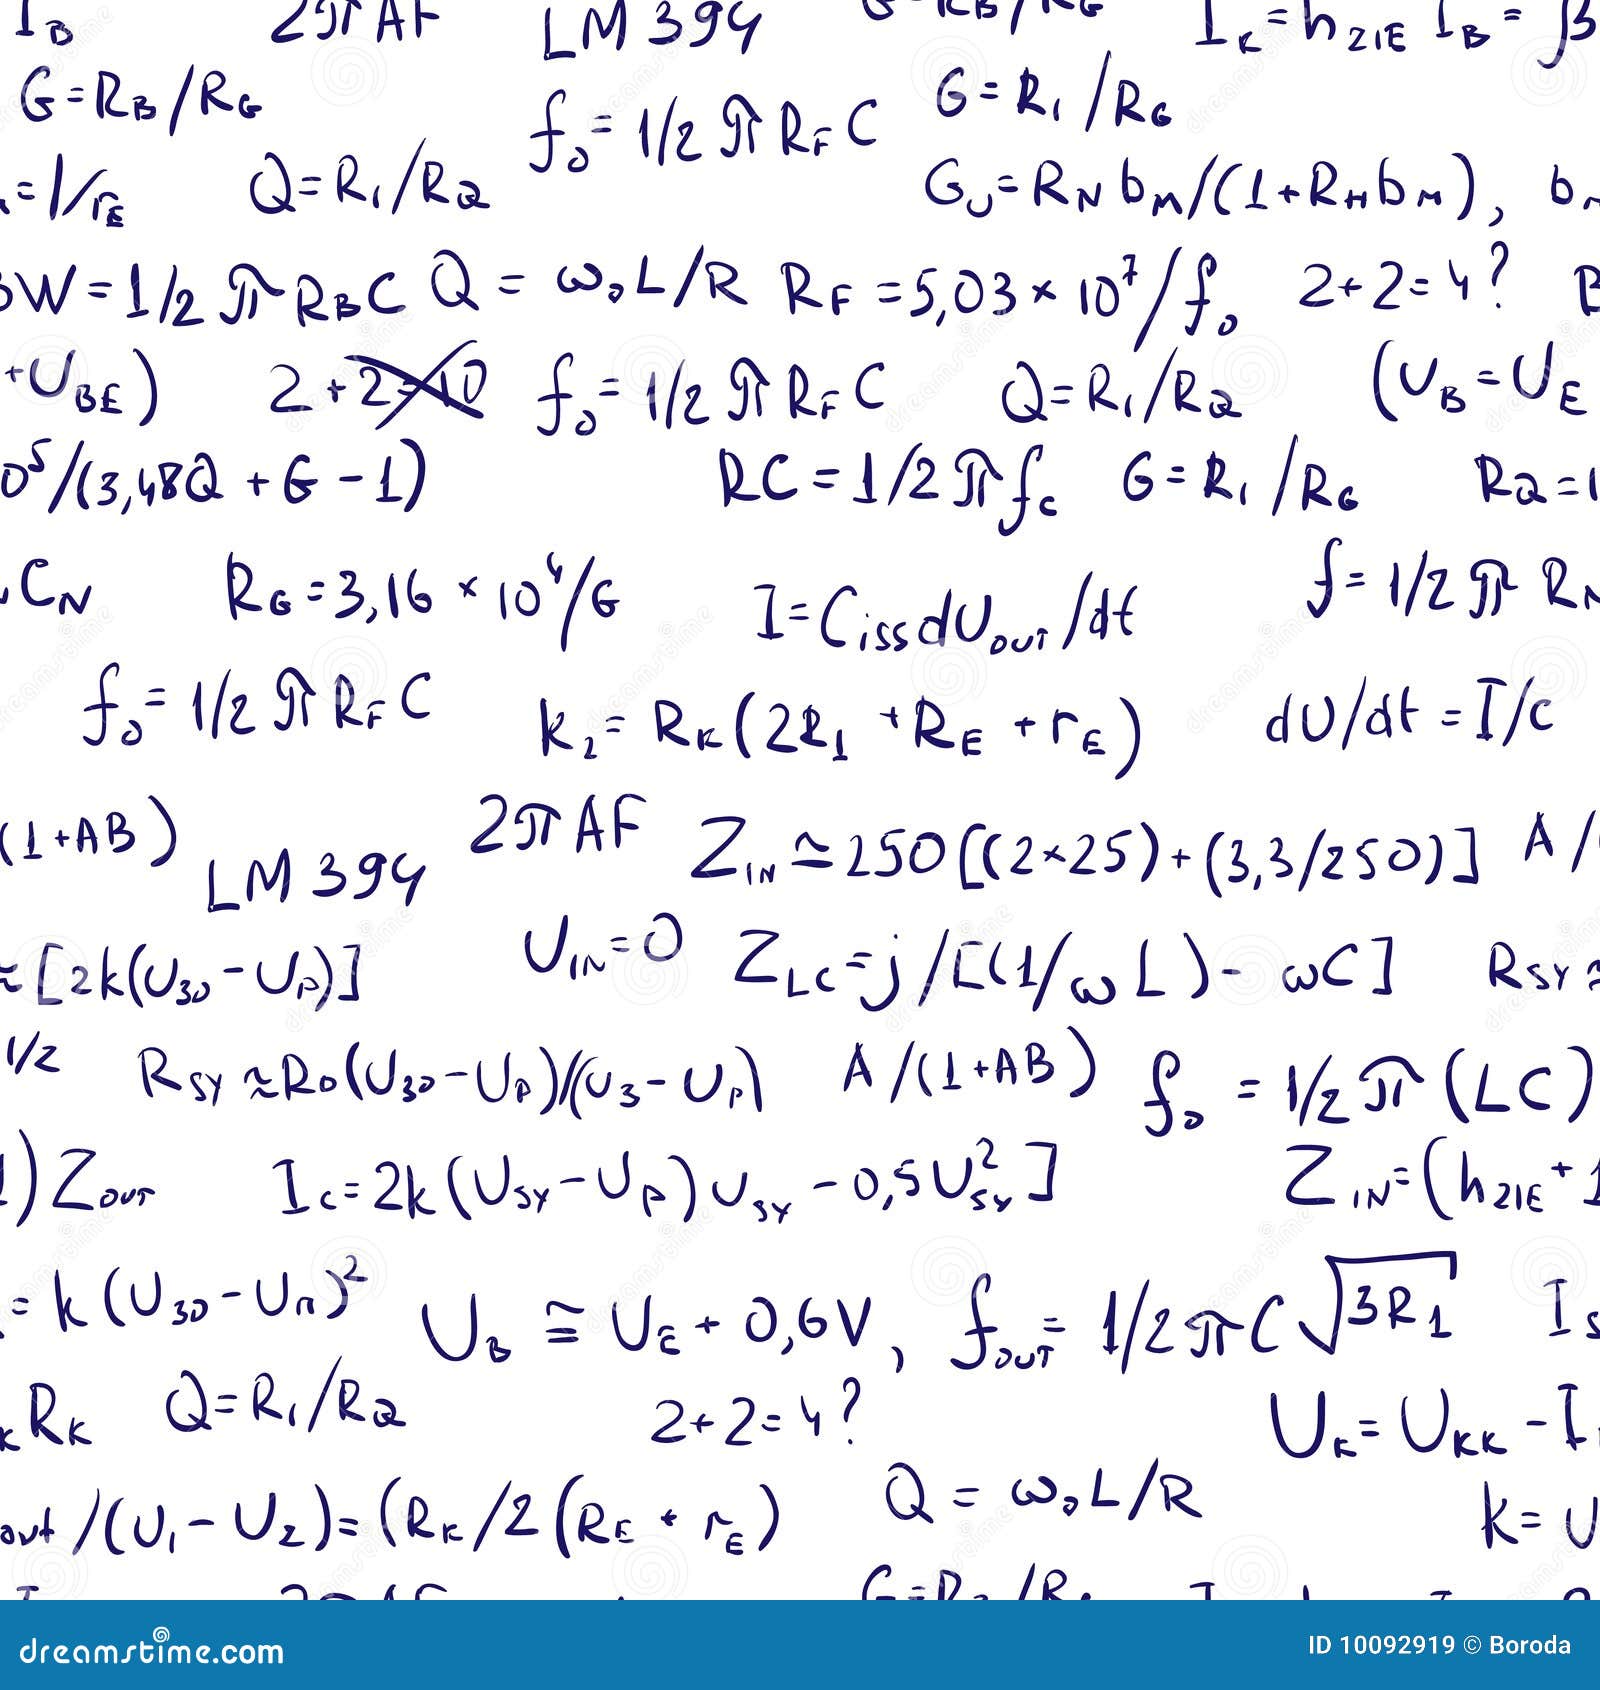 I_B 2πAF LM394 G=R_B/R_G I_K=h_21E I_B=β
G=R_B/R_G f_0=1/2πR_F C G=R_1/R_G
=1/r_E Q=R_1/R_Q G_U=R_N b_M/(1+R_H b_M),
BW=1/2πR_B C Q=ω_0L/R R_F=5,03×10^7/f_0 2+2=4?
+U_BE) 2+2=10 f_0=1/2πR_F C Q=R_1/R_Q (U_B=U_E
0^5/(3,48Q+G-1) RC=1/2πf_c G=R_1/R_G R_Q=1
C_N R_G=3,16×10^4/G I=C_iss dU_OUT/dt f=1/2πR_N
f_0=1/2πR_F C k_2=R_K(2R_1+R_E+r_E) dU/dt=I/c
(1+AB) LM394 2πAF Z_IN≃250[(2×25)+(3,3/250)] A/
≈[2k(U_30-U_P)] U_IN=0 Z_LC=j/[(1/ωL)-ωC] R_SY≈
1/2 R_SY≈R_0(U_30-U_P)/(U_3-U_P) A/(1+AB) f_0=1/2π(LC)
)Z_OUT I_C=2k(U_SY-U_P)U_SY-0,5U_SY^2] Z_IN=(h_21E+1
=k(U_30-U_n)^2 U_B≅U_E+0,6V, f_OUT=1/2πC√3R_1 I_S
R_K Q=R_1/R_Q 2+2=4? U_K=U_KK-I
out/(U_1-U_2)=(R_K/2(R_E+r_E) Q=ω_0L/R k=U
dreamstime.com ID 10092919 © Boroda